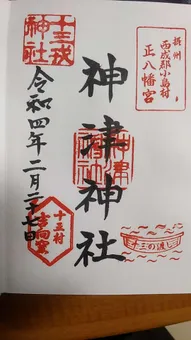 摂州
西成郡小島村
正八幡宮
十三戎
神社
神津神社
神津
神社
令和四年二月二十七日
十三村
吉向窯
十三の渡